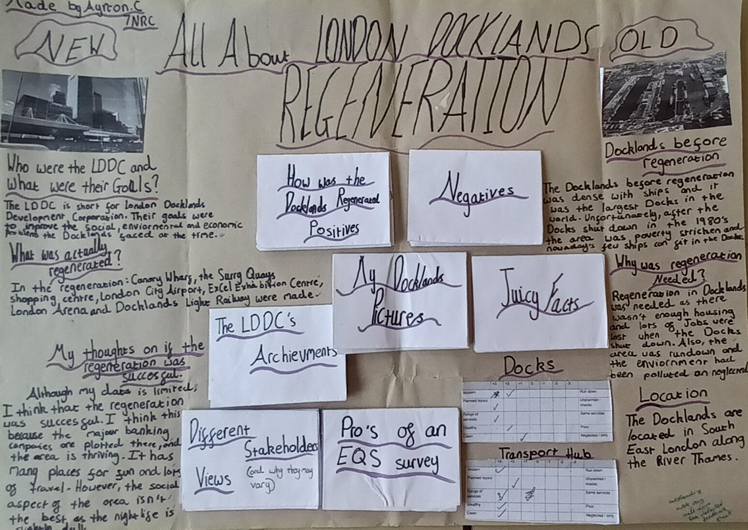 Made by Ayrton.C
7NRC
NEW
All About LONDON DOCKLANDS
REGENERATION
OLD
Who were the LDDC and
What were their Goals?
The LDDC is short for London Docklands
Development Corporation. Their goals were
to improve the social, enviormental and economic
problems the Docklands faced at the time.
What was actually
regenerated?
In the regeneration: Canary Wharf, the Surry Quays
shopping centre, London City Airport, Excel Exhibition Centre,
London Arena and Docklands Light Railway were made.
My thoughts on if the
regeneration was
successful.
Although my data is limited,
I think that the regeneration
was successful. I think this
because the major banking
companies are plotted there, and
the area is thriving. It has
many places for fun and lots
of travel. However, the social
aspect of the area isn't
the best as the nightlife is
How was the
Docklands Regenerated
Positives
Negatives
My Docklands
Pictures
Juicy Facts
The LDDC's
Archievments
Different
Stakeholders
Views
(and why they may
vary)
Pro's of an
EQS survey
Docks
Run down
Same services
Poor
Transport Hub
Run down
Same services
Poor
Docklands before
regeneration
The Docklands before regeneration
was dense with ships and it
was the largest Docks in the
world. Unfortunately, after the
Docks shut down in the 1980's
the area was poverty stricken and
nowadays few ships can get in the Docks.
Why was regeneration
Needed?
Regeneration in Docklands
was needed as there
wasn't enough housing
and lots of Jobs were
lost when the Docks
shut down. Also, the
area was rundown and
the enviorment had
been polluted an neglected
Location
The Docklands are
located in South
East London along
the River Thames.